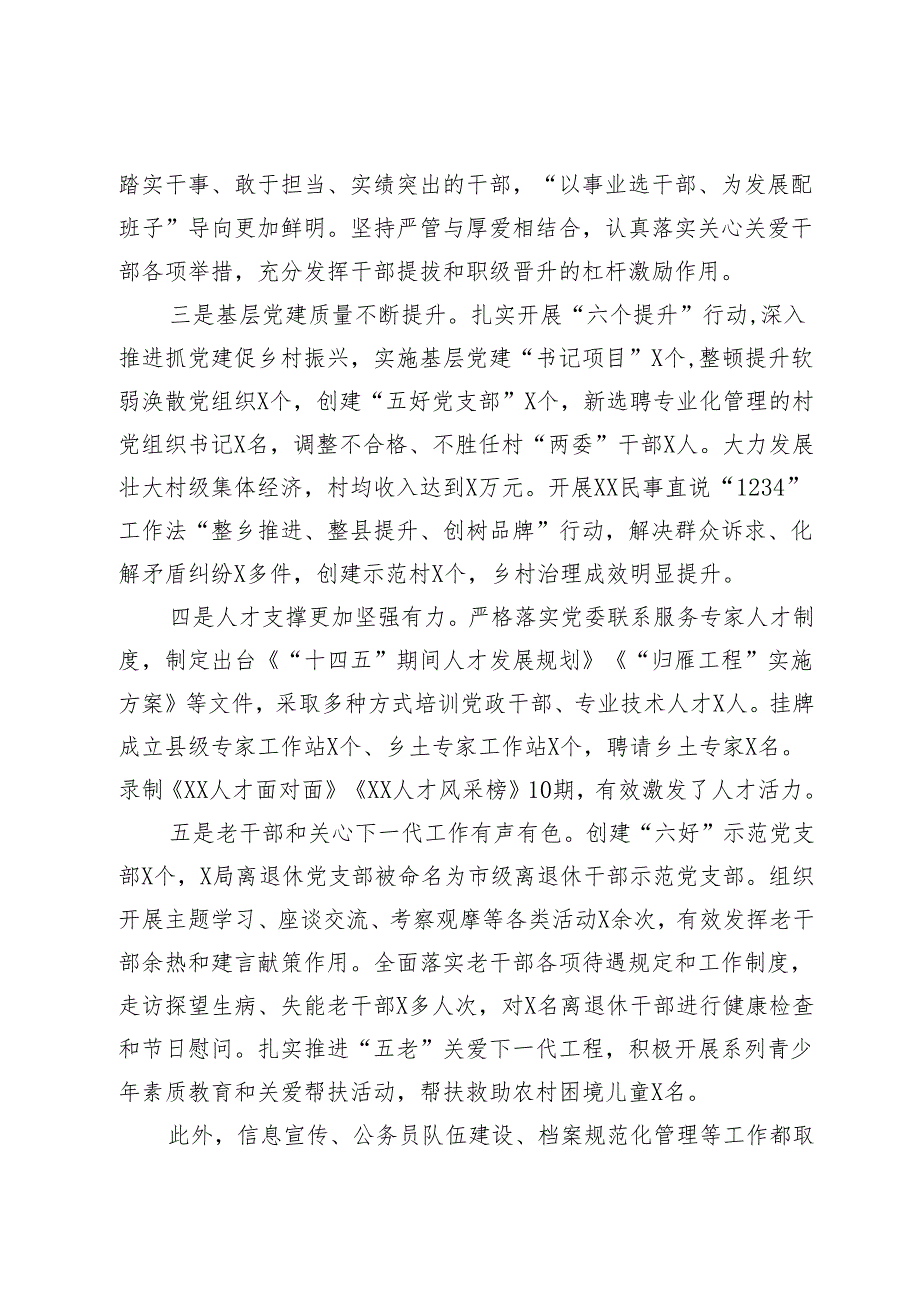 踏实干事、敢于担当、实绩突出的干部，“以事业选干部、为发展配
班子”导向更加鲜明。坚持严管与厚爱相结合，认真落实关心关爱干
部各项举措，充分发挥干部提拔和职级晋升的杠杆激励作用。
三是基层党建质量不断提升。扎实开展“六个提升”行动,深入
推进抓党建促乡村振兴，实施基层党建“书记项目”X个,整顿提升软
弱涣散党组织X个，创建“五好党支部”X个，新选聘专业化管理的村
党组织书记X名，调整不合格、不胜任村“两委”干部X人。大力发展
壮大村级集体经济，村均收入达到X万元。开展XX民事直说“1234”
工作法“整乡推进、整县提升、创树品牌”行动，解决群众诉求、化
解矛盾纠纷X多件，创建示范村X个，乡村治理成效明显提升。
四是人才支撑更加坚强有力。严格落实党委联系服务专家人才制
度，制定出台《“十四五”期间人才发展规划》《“归雁工程”实施
方案》等文件，采取多种方式培训党政干部、专业技术人才X人。挂牌
成立县级专家工作站X个、乡土专家工作站X个，聘请乡土专家X名。
录制《XX人才面对面》《XX人才风采榜》10期，有效激发了人才活力。
五是老干部和关心下一代工作有声有色。创建“六好”示范党支
部X个，X局离退休党支部被命名为市级离退休干部示范党支部。组织
开展主题学习、座谈交流、考察观摩等各类活动X余次，有效发挥老干
部余热和建言献策作用。全面落实老干部各项待遇规定和工作制度，
走访探望生病、失能老干部X多人次，对X名离退休干部进行健康检查
和节日慰问。扎实推进“五老”关爱下一代工程，积极开展系列青少
年素质教育和关爱帮扶活动，帮扶救助农村困境儿童X名。
此外，信息宣传、公务员队伍建设、档案规范化管理等工作都取